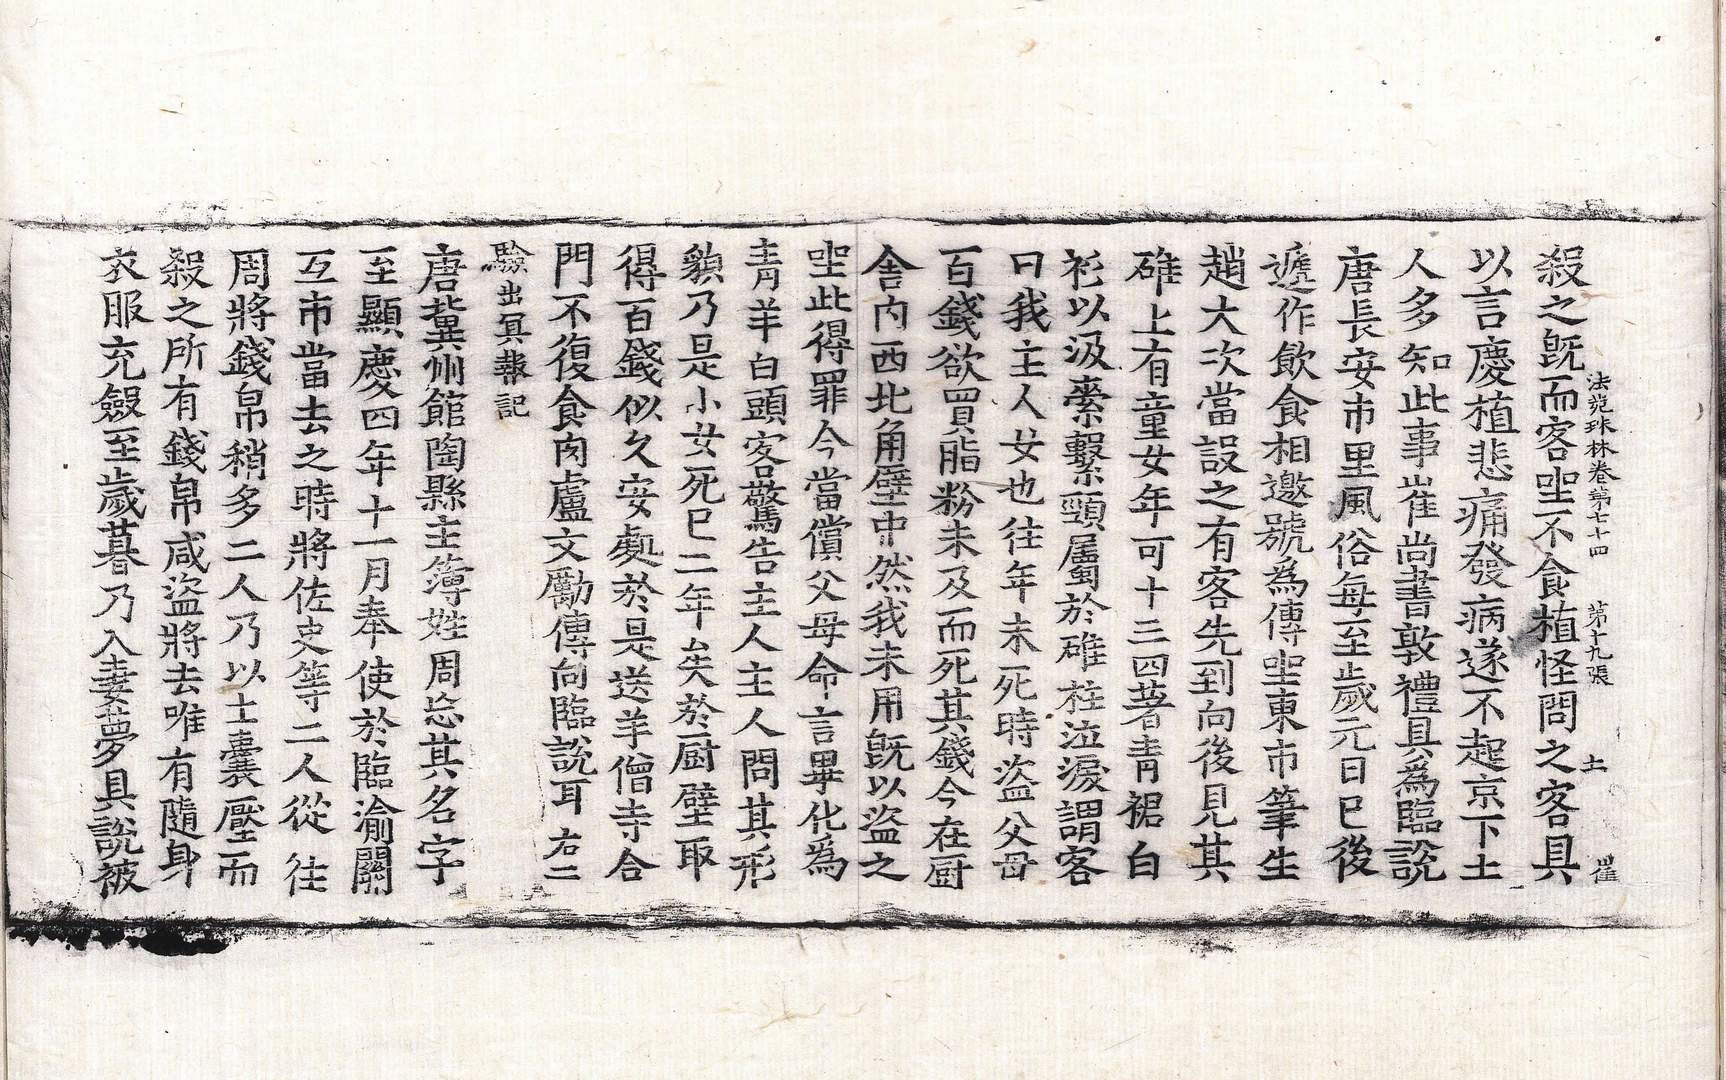 法苑珠林卷第七十四 第十九張 土 崔
殺之旣而客坐不食植怪問之客具
以言慶植悲痛發病遂不起京下士
人多知此事崔尚書敦禮具爲臨說
唐長安市里風俗每至歲元日已後
遞作飮食相邀號爲傳坐東市筆生
趙大次當設之有客先到向後見其
碓上有童女年可十三四著靑裙白
衫以汲索繫頸屬於碓柱泣淚謂客
曰我主人女也往年未死時盜父母
百錢欲買脂粉未及而死其錢今在厨
舍內西北角壁中然我未用旣以盜之
坐此得罪今當償父母命言畢化爲
靑羊白頭客驚告主人主人問其形
貌乃是小女死已二年矣於厨壁取
得百錢似久安處於是送羊僧寺合
門不復食肉盧文勵傳向臨說耳右二
驗出冥報記
唐冀州館陶縣主簿姓周忘其名字
至顯慶四年十一月奉使於臨渝關
互市當去之時將佐史等二人從往
周將錢帛稍多二人乃以土囊壓而
殺之所有錢帛咸盜將去唯有隨身
衣服充斂至歲暮乃入妻夢具說被